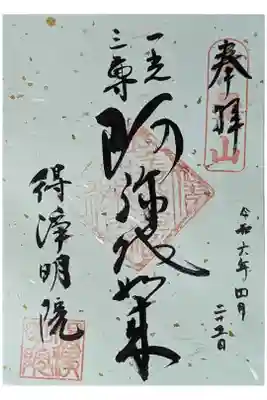 奉拝
一光
三尊
阿弥陀如来
令和六年四月
二十五日
得浄明院